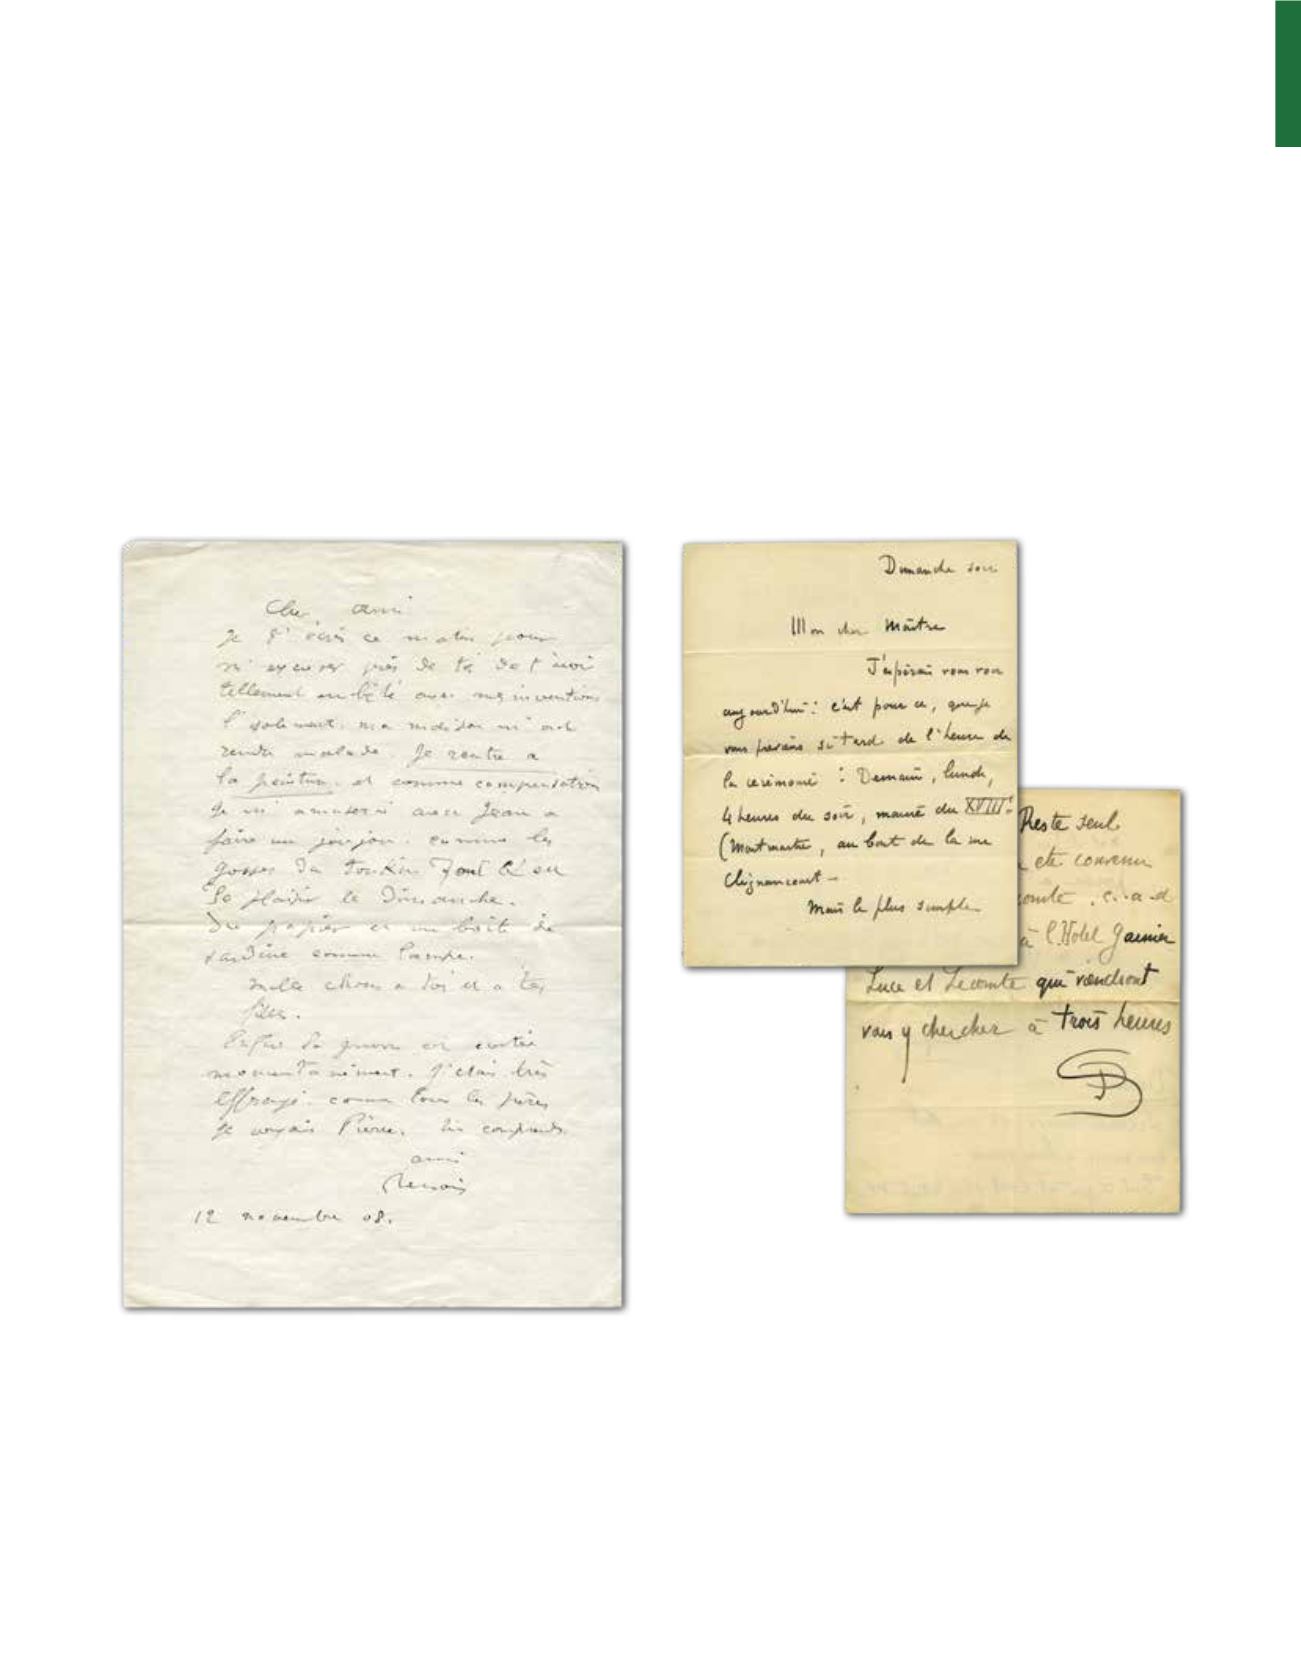 Cher ami
Je t'écris ce matin pour
m'excuser près de toi de t'avoir
tellement embêté avec mes inventions
l'isolement, ma maison m'ont
rendu malade. Je rentre a
la peinture. et comme compensation
Je m'amuserai avec Jean a
faire un joujou. comme les
gosses du Tonkin font
le plaisir le Dimanche.
Du papier et un boite de
sardine comme lampe.
mille choses a toi et a tes
filles.
Enfin la guerre est evitée
momentanément. J'etais très
effrayé. comme tous les pères
Je voyais Pierre. tu comprends.
ami
Renoir
12 novembre 08.
Dimanche soir
Mon cher Maître
J'espérais vous voir
aujourd'hui : c'est pour ce, que je
vous préviens si tard de l'heure de
la cérémonie : Demain, lundi,
4 heures du soir, mairie du XVIIIe
(Montmartre, au bout de la rue
Clignancourt —
Mais le plus simple
Reste seul
été convenu
comte, c. a. d
à l'Hotel Garnier
Luce et Lecomte qui viendront
vous y chercher à trois heures